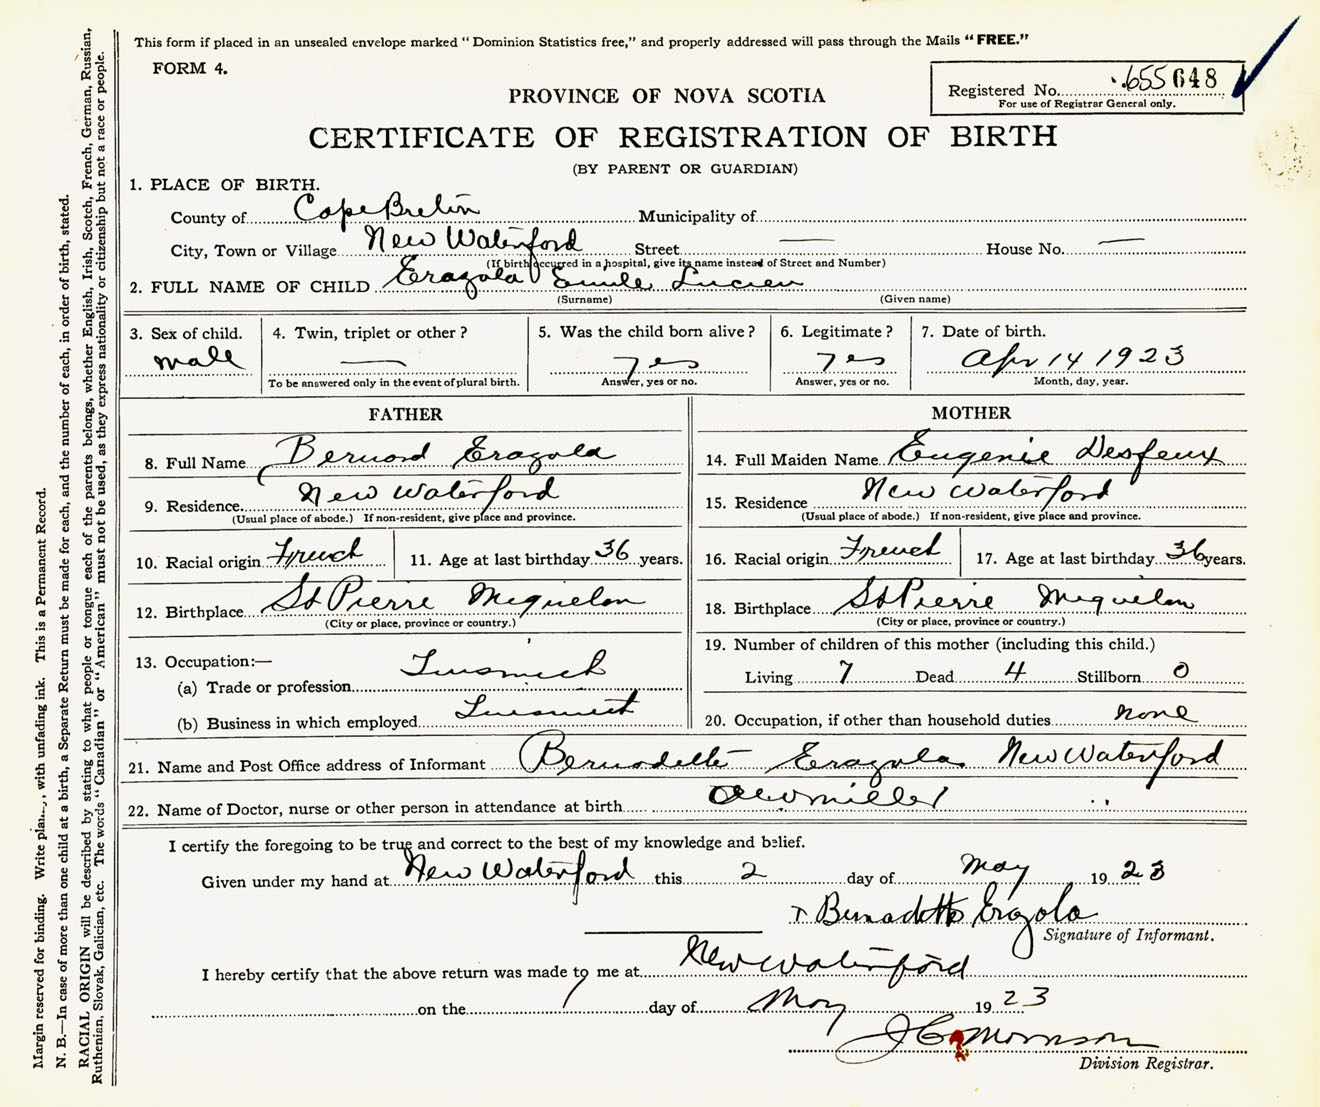 This form if placed in an unsealed envelope marked "Dominion Statistics free," and properly addressed will pass through the Mails "FREE."
FORM 4.
Registered No. 655648
For use of Registrar General only.
PROVINCE OF NOVA SCOTIA
CERTIFICATE OF REGISTRATION OF BIRTH
(BY PARENT OR GUARDIAN)
1. PLACE OF BIRTH.
County of Cape Breton Municipality of
City, Town or Village New Waterford Street — House No. —
(If birth occurred in a hospital, give its name instead of Street and Number)
2. FULL NAME OF CHILD Erazola Emile Lucien
(Surname) (Given name)
3. Sex of child. 4. Twin, triplet or other? 5. Was the child born alive? 6. Legitimate? 7. Date of birth.
male — yes yes Apr 14 1923
To be answered only in the event of plural birth. Answer, yes or no. Answer, yes or no. Month, day, year.
FATHER MOTHER
8. Full Name Bernard Erazola 14. Full Maiden Name Eugenie Desfeux
9. Residence New Waterford 15. Residence New Waterford
(Usual place of abode.) If non-resident, give place and province. (Usual place of abode.) If non-resident, give place and province.
10. Racial origin French 11. Age at last birthday 36 years. 16. Racial origin French 17. Age at last birthday 36 years.
12. Birthplace St Pierre Miquelon 18. Birthplace St Pierre Miquelon
(City or place, province or country.) (City or place, province or country.)
13. Occupation:— 19. Number of children of this mother (including this child.)
(a) Trade or profession Living 7 Dead 4 Stillborn 0
(b) Business in which employed 20. Occupation, if other than household duties none
21. Name and Post Office address of Informant Bernadette Erazola New Waterford
22. Name of Doctor, nurse or other person in attendance at birth
I certify the foregoing to be true and correct to the best of my knowledge and belief.
Given under my hand at New Waterford this 2 day of May 1923
Bernadette Erazola
Signature of Informant.
I hereby certify that the above return was made to me at New Waterford
on the 7 day of May 1923
J C Morrison
Division Registrar.
Margin reserved for binding. Write , with unfading ink. This is a Permanent Record.
N. B.—In case of more than one child at a birth, a Separate Return must be made for each, and the number of each, in order of birth, stated.
RACIAL ORIGIN will be described by stating to what people or tongue each of the parents belongs, whether English, Irish, Scotch, French, German, Russian,
Ruthenian, Slovak, Galician, etc. The words "Canadian" or "American" must not be used, as they express nationality or citizenship but not a race or people.